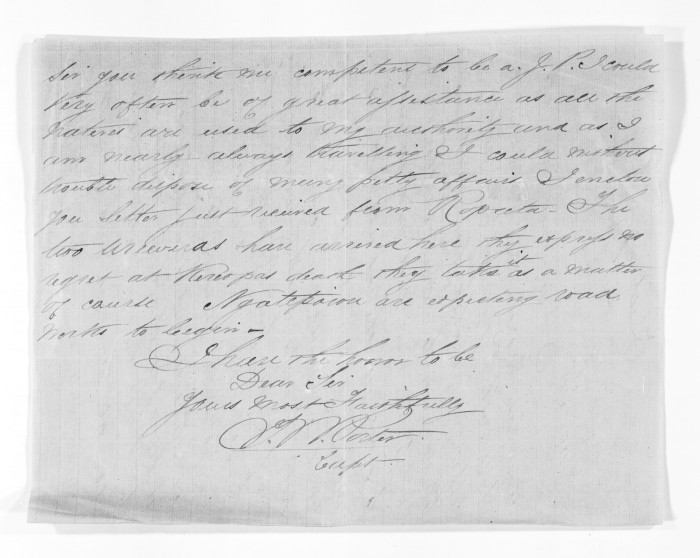 Sir you think me competent to be a J. P. I could
very often be of great assistance as all the
natives are used to my authority and as I
am nearly always travelling I could without
trouble dispose of many petty affairs I enclose
you letter just received from Ropata - The
two Ureweras have arrived here they express no
regret at Kereopas death they take it as a matter
of course Ngatiporou are expecting road
works to begin -
I have the honor to be
Dear Sir
Yours most Faithfully
T. W. Porter
Capt.